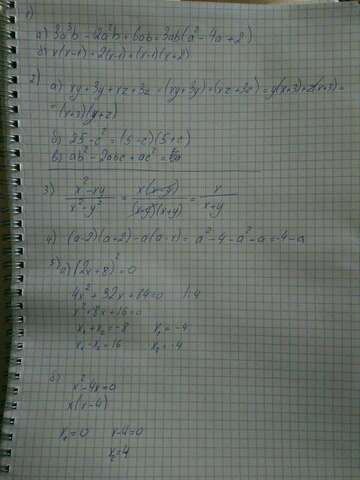 1)
а) 3a³b - 12a²b + 6ab = 3ab(a² - 4a + 2)
б) x(x-1) + 2(x-1) = (x-1)(x+2)
2)
а) xy + 3y + xz + 3z = (xy+3y) + (xz+3z) = y(x+3) + z(x+3) =
= (x+3)(y+z)
б) 25 - c² = (5-c)(5+c)
в) ab² - 2abc + ac² =
3) x² - xy / x² - y² = x(x-y) / (x-y)(x+y) = x / x+y
4) (a-2)(a+2) - a(a-1) = a² - 4 - a² - a = -4 - a
5) а) (2x+8)² = 0
4x² + 32x + 64 = 0 /:4
x² + 8x + 16 = 0
x₁ + x₂ = -8 x₁ = -4
x₁ · x₂ = 16 x₂ = -4
б)
x² - 4x = 0
x(x-4)
x₁ = 0 x-4 = 0
x₂ = 4